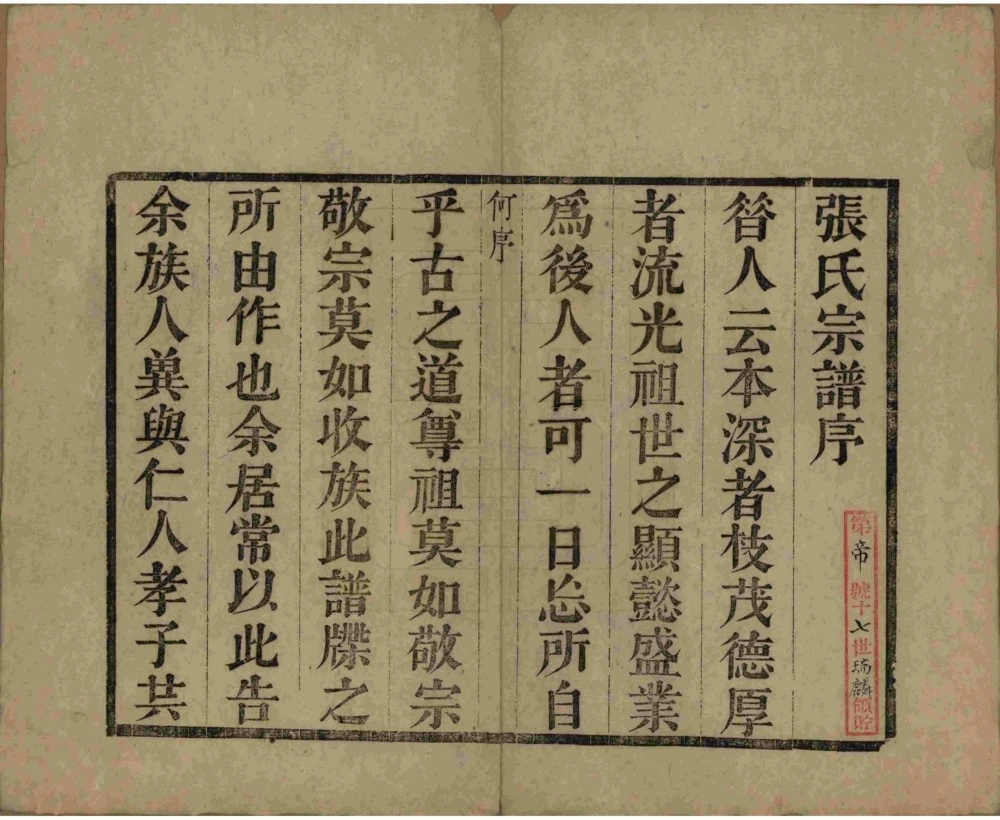 張氏宗譜序
昝人云本深者枝茂德厚
者流光祖世之顯懿盛業
爲後人者可一日忘所自
何序
乎古之道尊祖莫如敬宗
敬宗莫如收族此譜牒之
所由作也余居常以此告
余族人兾與仁人孝子共
第帝號十七世瑞麟領貯